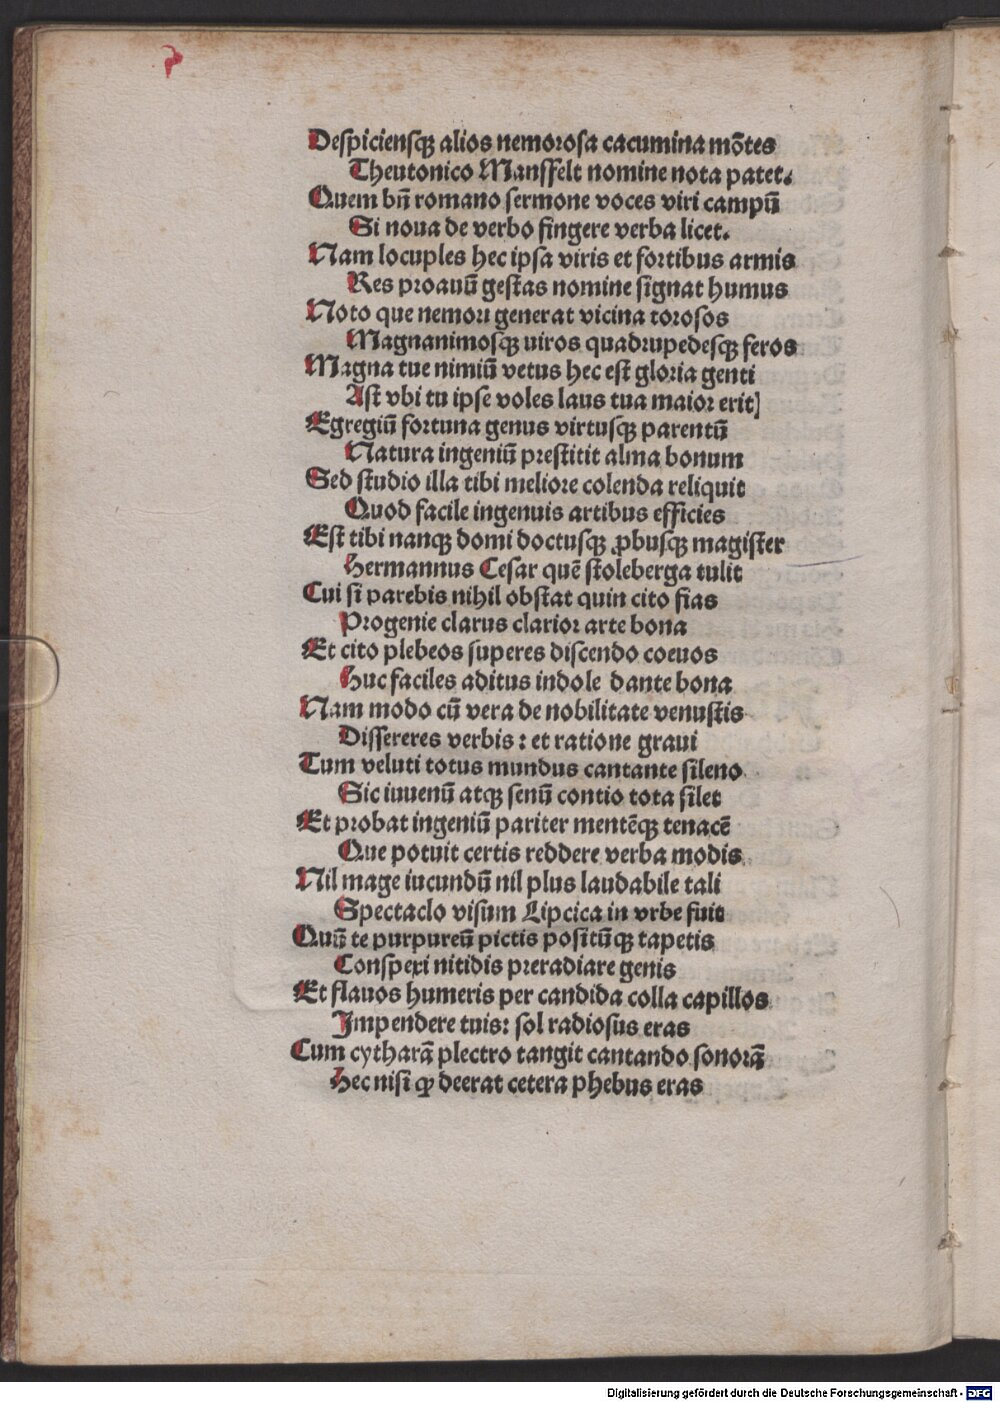 Despiciensqꝫ alios nemorosa cacumina mõtes
Theutonico Mansfelt nomine nota patet.
Quem bñ romano sermone voces viri campũ
Si noua de verbo fingere verba licet.
Nam locuples hec ipsa viris et fortibus armis
Res proauũ gestas nomine signat humus
Noto que nemori generat vicina torosos
Magnanimosqꝫ uiros quadrupedesqꝫ feros
Magna tue nimiũ vetus hec est gloria genti
Ast vbi tu ipse voles laus tua maior erit]
Egregiũ fortuna genus virtusqꝫ parentũ
Natura ingeniũ prestitit alma bonum
Sed studio illa tibi meliore colenda reliquit
Quod facile ingenuis artibus efficies
Est tibi nanqꝫ domi doctusqꝫ ꝓbusqꝫ magister
Hermannus Cesar quẽ stoleberga tulit
Cui si parebis nihil obstat quin cito fias
Progenie clarus clarior arte bona
Et cito plebeos superes discendo coeuos
Huc faciles aditus indole dante bona
Nam modo cũ vera de nobilitate venustis
Dissereres verbis: et ratione graui
Tum veluti totus mundus cantante sileno
Sic iuuenũ atqꝫ senũ contio tota silet
Et probat ingeniũ pariter mentẽqꝫ tenacẽ
Que potuit certis reddere verba modis
Nil mage iucundũ nil plus laudabile tali
Spectaclo visum Lipcica in vrbe fuit
Quũ te purpureũ pictis positũqꝫ tapetis
Conspexi nitidis preradiare genis
Et flauos humeris per candida colla capillos
Impendere tuis: sol radiosus eras
Cum cytharã plectro tangit cantando sonorã
Hec nisi ꝙ deerat cetera phebus eras
Digitalisierung gefördert durch die Deutsche Forschungsgemeinschaft - DFG